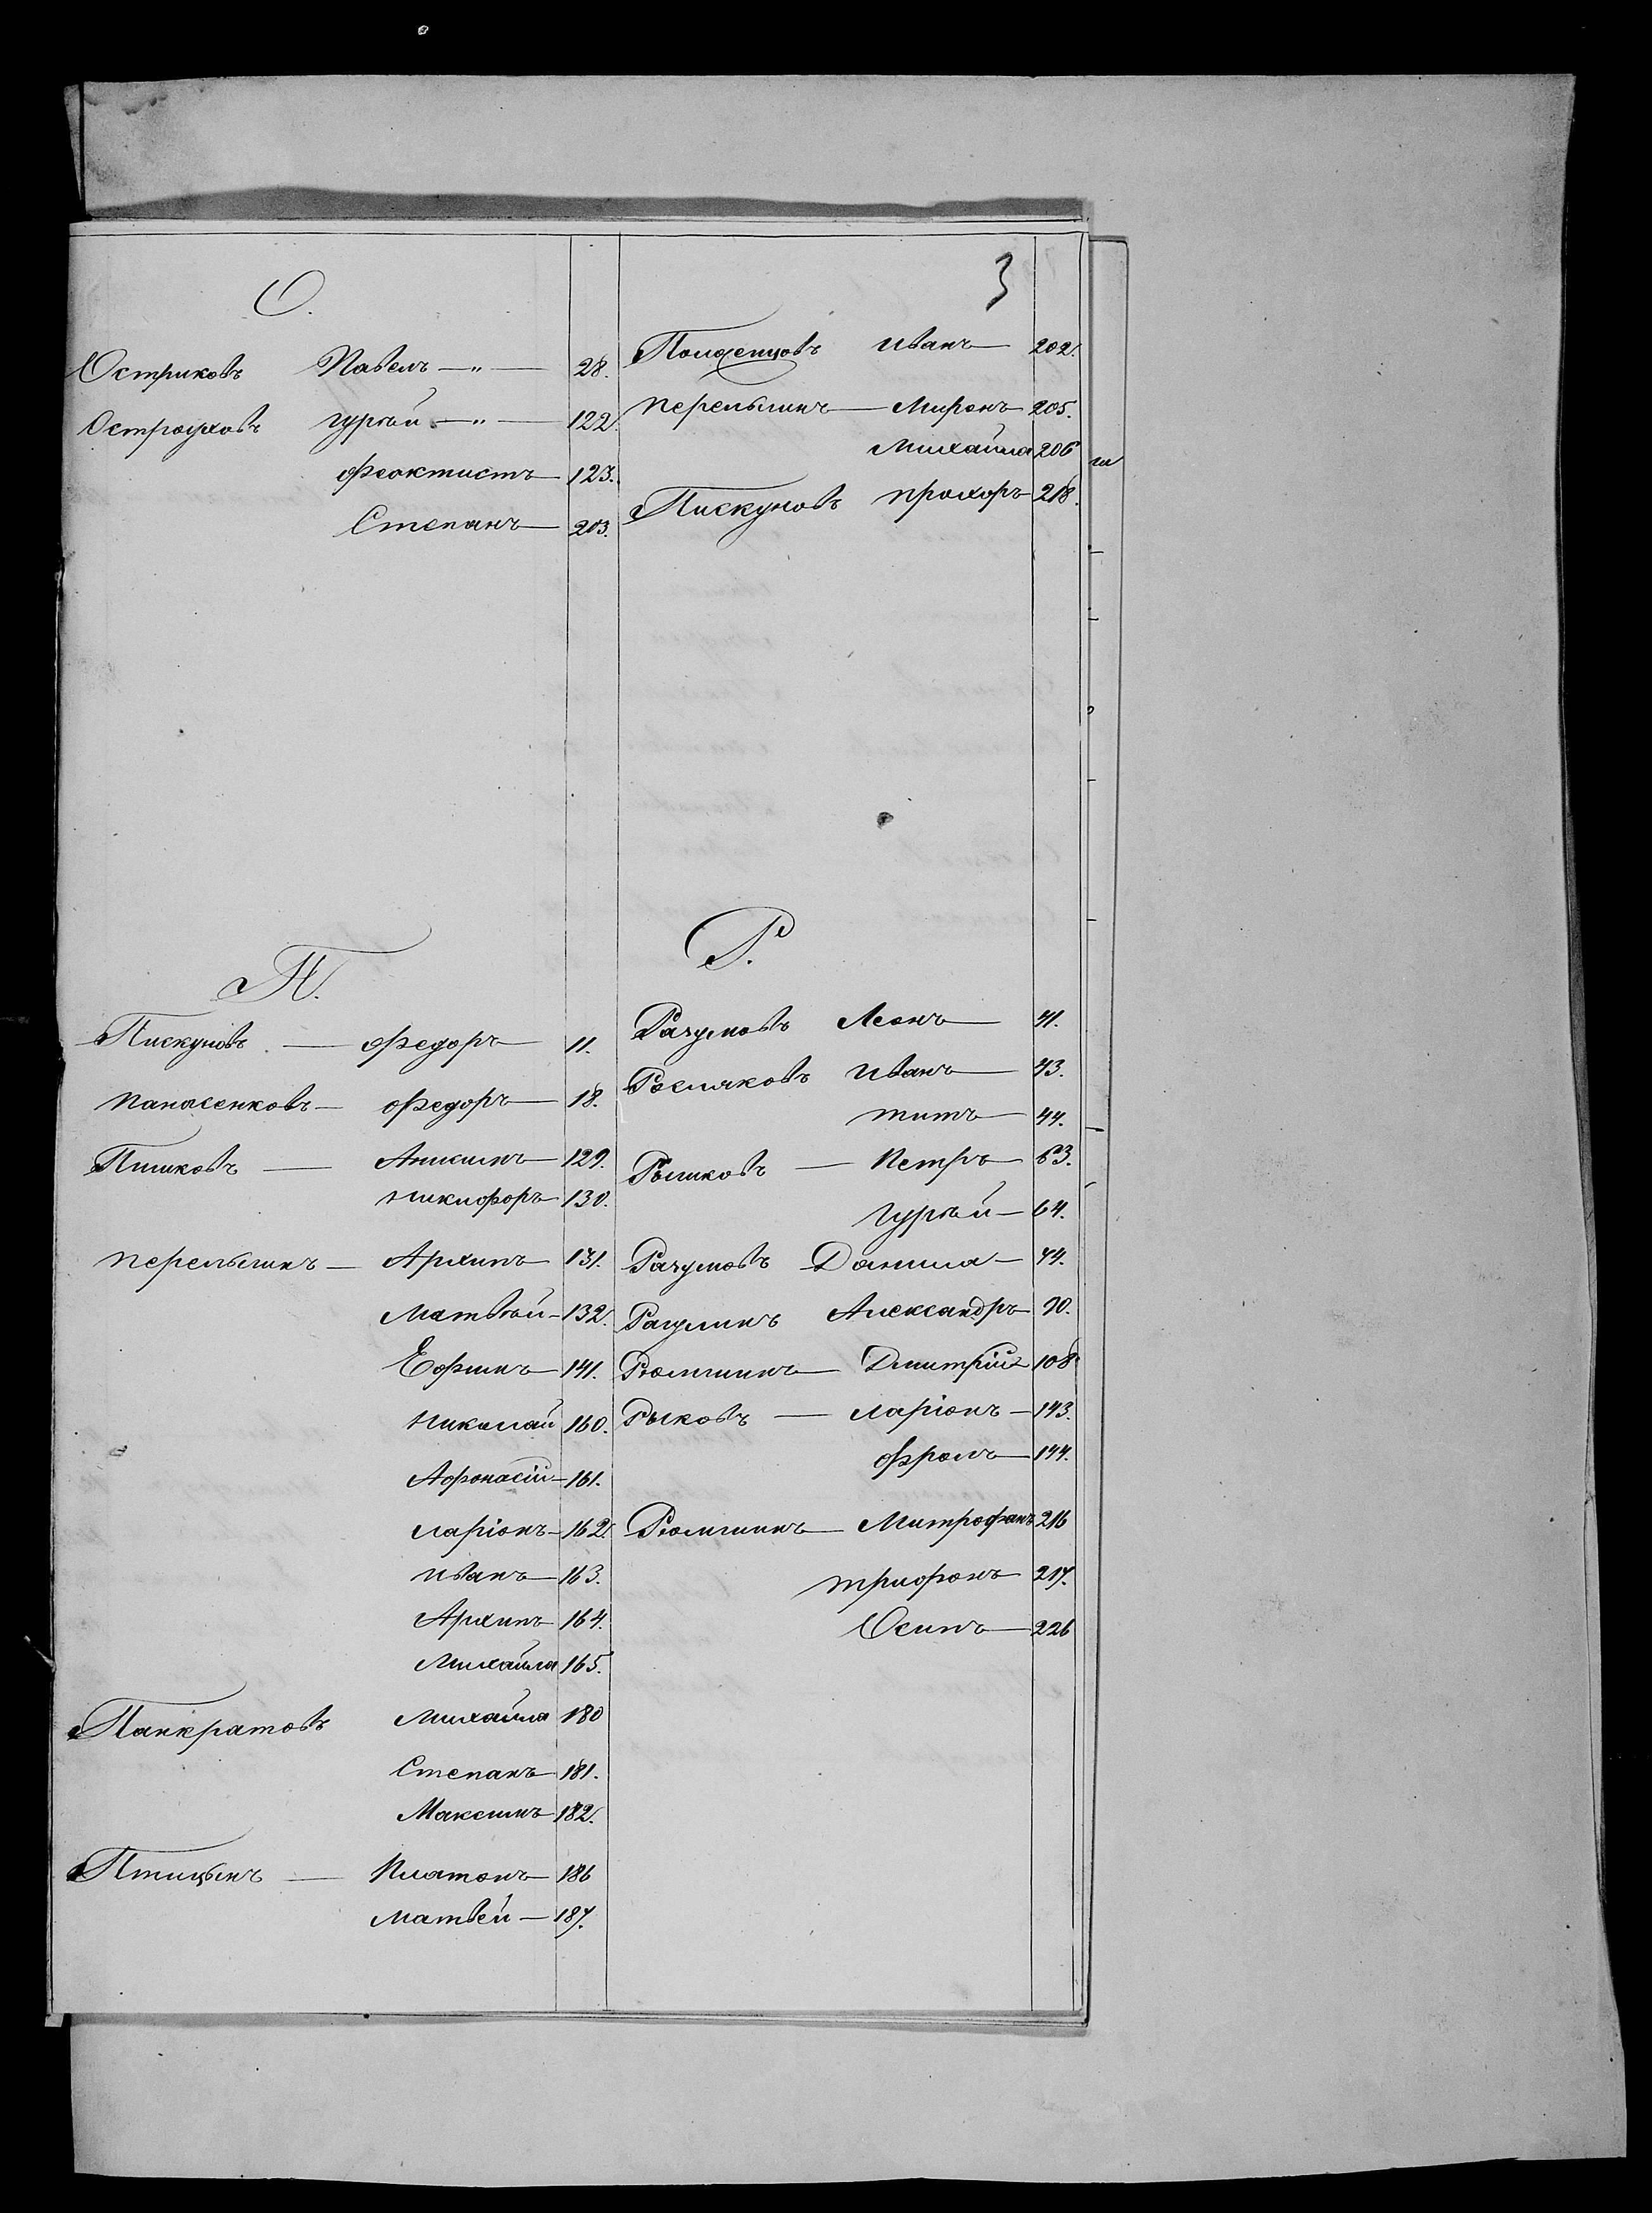 О.
Остриковъ Павелъ —„— 28.
Остроуховъ гурьй —„— 122.
феоктистъ — 123.
Степанъ — 203.
П.
Пискуновъ — федоръ — 11.
Панасенковъ — федоръ — 18.
Пишковъ — Аникинъ — 129.
никифоръ — 130.
перелыгинъ — Архипъ — 131.
Матвѣй — 132.
Ефимъ — 141.
николай 160.
Афонасій — 161.
ларіонъ — 162.
иванъ — 163.
Архипъ — 164.
Михайла 165.
Панкратовъ Михайла 180
Степанъ — 181.
Максимъ — 182.
Птицынъ — Платонъ — 186
Матвей — 187.
3
иванъ — 202.
перелыгинъ — Миронъ — 205.
Михайла 206
Пискуновъ прохоръ — 218.
Р.
Разумовъ Леонъ — 41.
Росляковъ иванъ — 43.
титъ — 44.
Рыжковъ — Петръ — 63.
гурьй — 64.
Разумовъ Данила — 74.
Рагулинъ Александръ — 90.
Рюмшинъ — Дмитрій 108
Рыковъ — ларіонъ — 143.
фролъ — 144.
Рюмшинъ — Митрофанъ 216
трифонъ 217.
Осипъ — 226